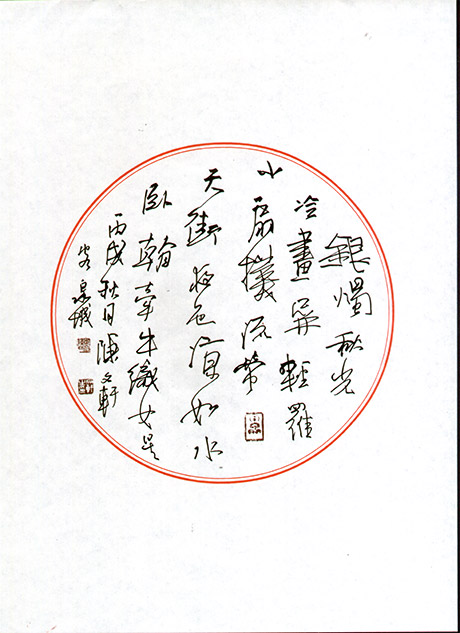 銀燭秋光
冷畫屏輕羅
小扇撲流螢
天街夜色涼如水
臥看牽牛織女星
丙戌秋月陳文軒
泉城